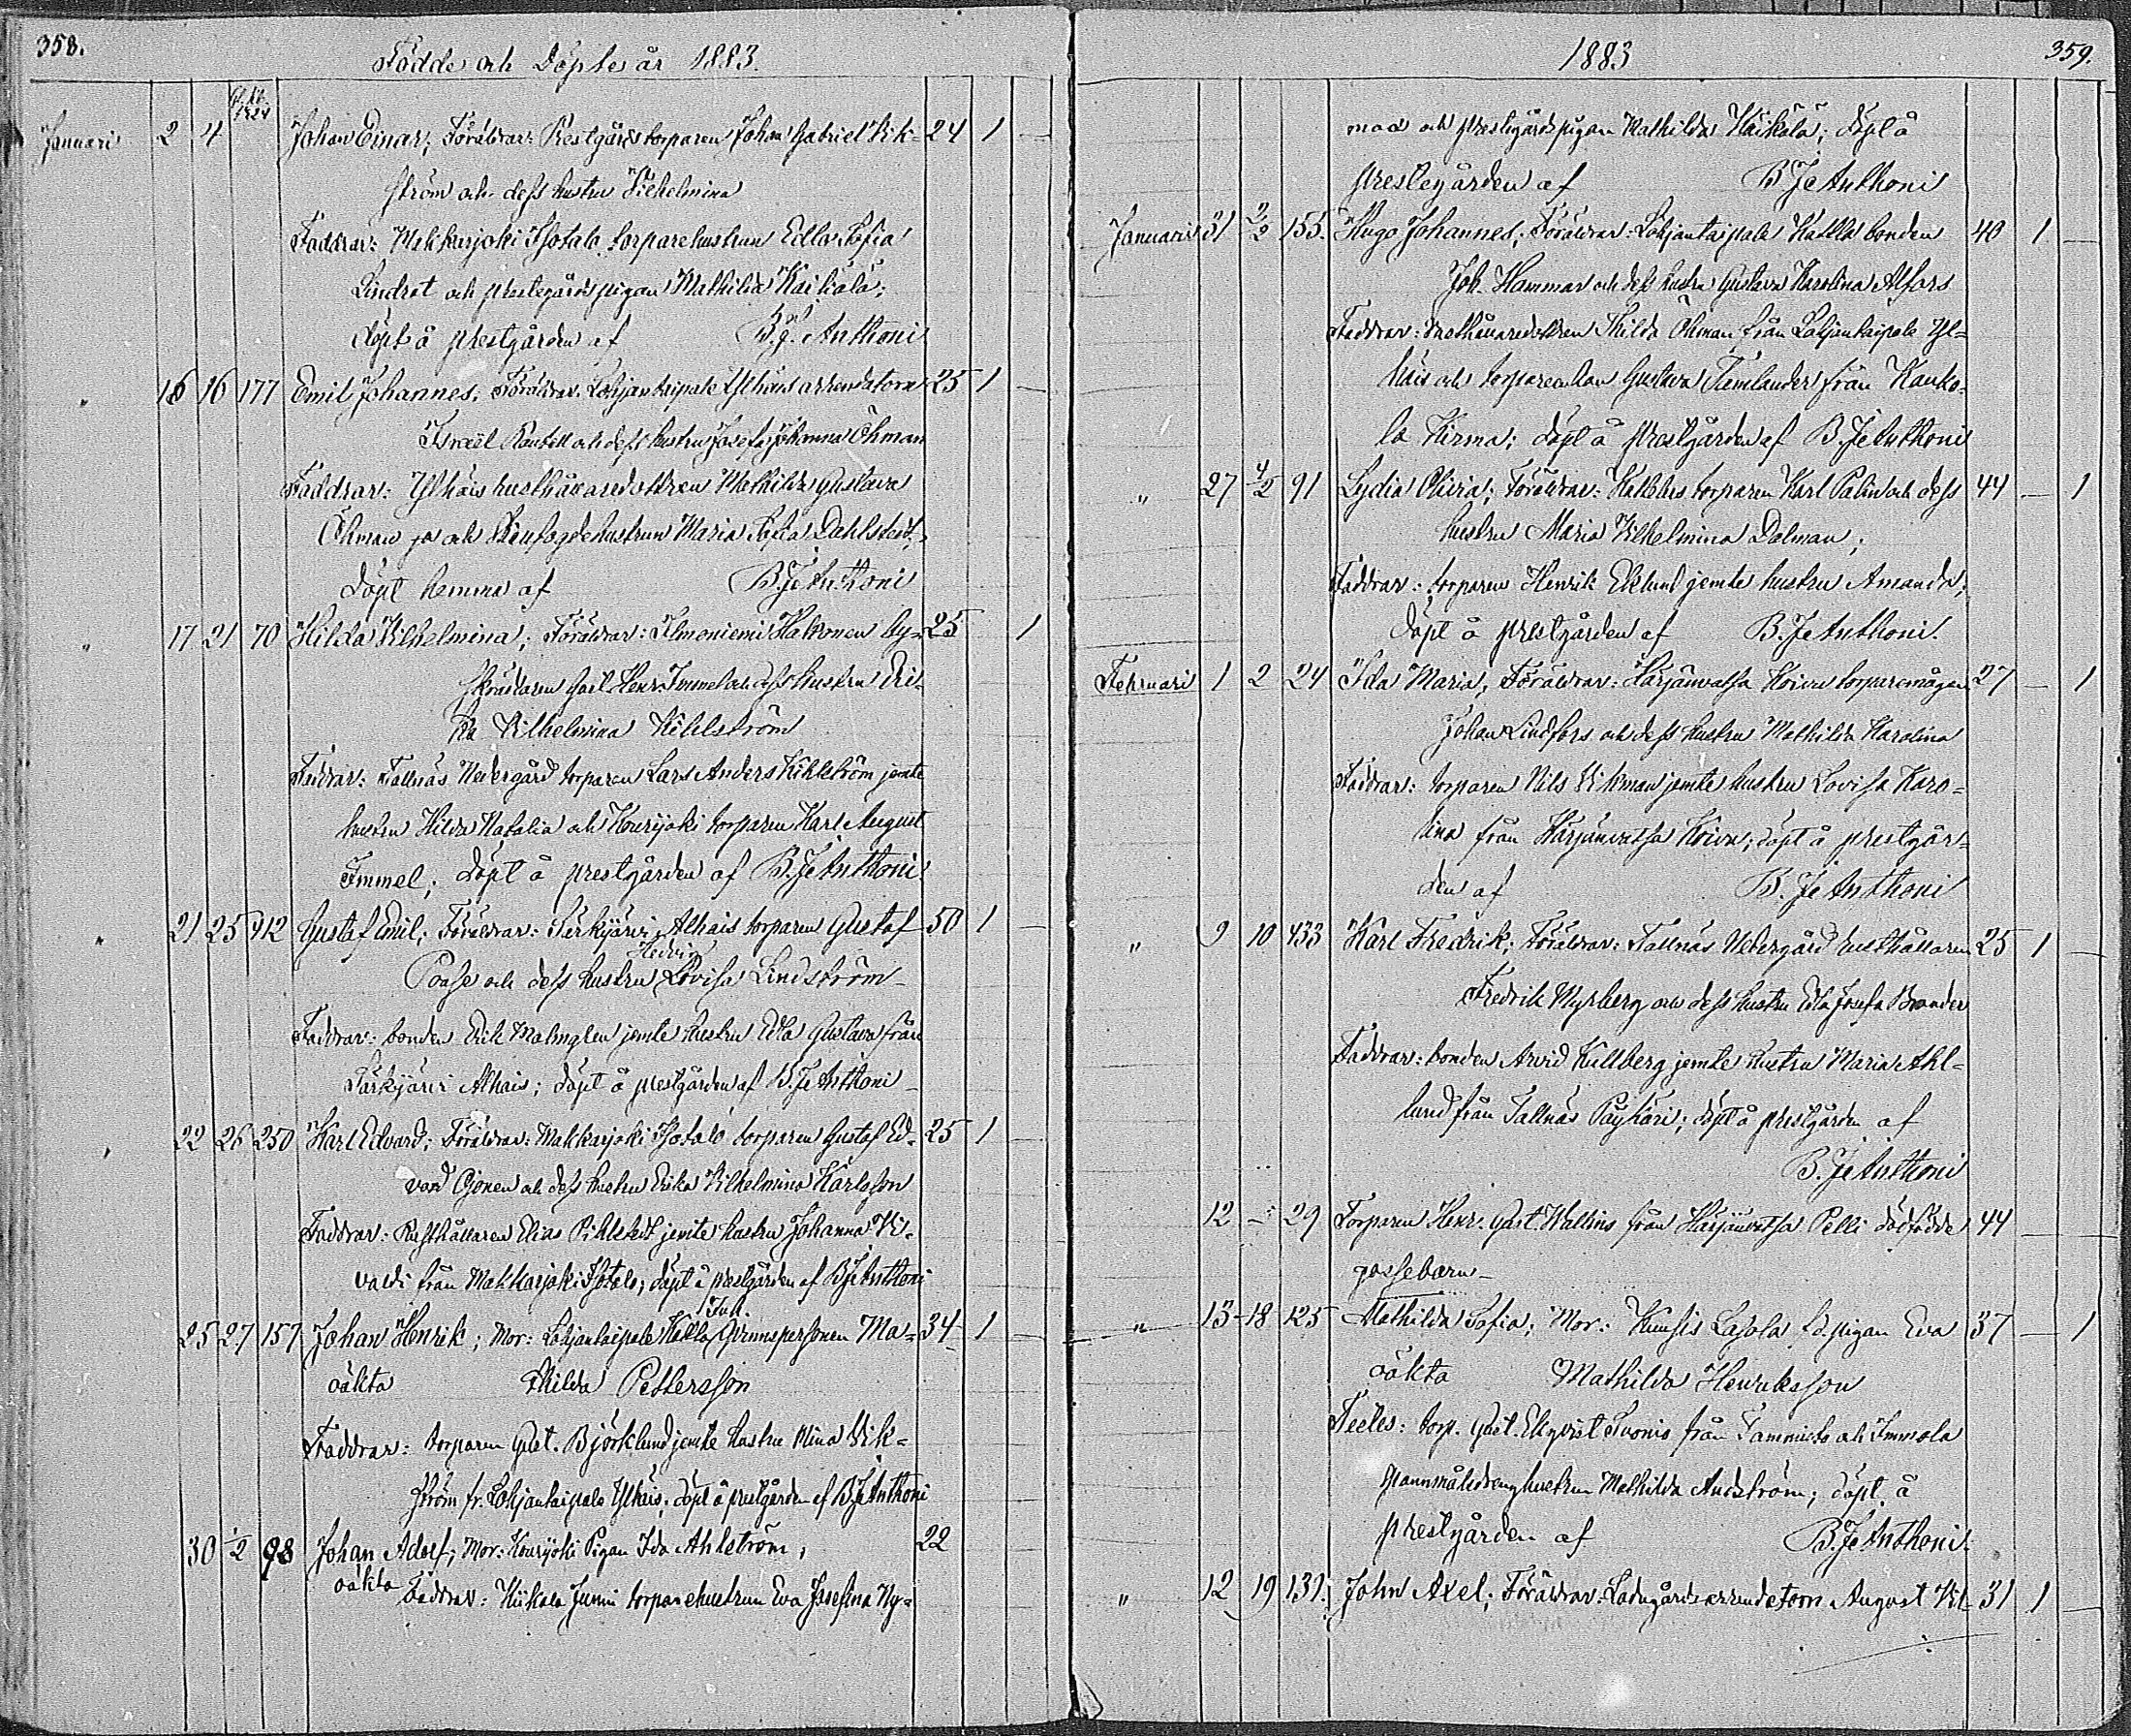 358.
Födde och Döpte år 1883.
Januari 2 4 Johan Einar; Föräldrar: Prestgårds torparen Johan Gabriel Vik- 24 1
ström och dess hustru Vilhelmina
Faddrar: Makkarjoki Isotalo torparehustrun Edla Sofia
Lindrot och prestegårdspigan Mathilda Kaikala;
döpt å prestgården af B. J. Anthoni
" 16 16 177 Emil Johannes; Föräldrar: Lohjantaipale Ylhäis arrendatorn 25 1 —
Israël Rantell och dess hustru Josefa Johanna Öhman
Faddrar: Ylhäis husthållaredottren Mathilda Gustava
Öhman jo och Skenfogdehustrun Maria Sofia Dahlstedt,
döpt hemma af B. J. Anthoni
" 17 21 70 Hilda Vilhelmina; Föräldrar: Ilmoniemi Hakronen By- 25 1
skräddaren Carl Henr. Immel och dess hustru Eri-
ka Vilhelmina Kihlström
Faddrar: Tallnäs Nedergård torparen Lars Anders Kihlström jemte
hustru Hilda Natalia och Kourjoki torparen Karl August
Immel; döpt å prestgården af B. J. Anthoni.
" 21 25 912 Gustaf Emil; Föräldrar: Särkjärvi Alhais torparen Gustaf 50 1 —
Hedvig
Poase och dess hustru Lovisa Lindström
Faddrar: bonden Erik Malmgren jemte hustru Edla Gustava från
Särkjärvi Alhais; döpt å prestgården af B. J. Anthoni
" 22 26 250 Karl Edvard; Föräldrar: Makkarjoki Isotalo torparen Gustaf Ed- 25 1 —
vard Ojonen och dess hustru Erika Vilhelmina Karlsson
Faddrar: Rusthållaren Elias Pihlstedt jemte hustru Johanna Vi-
valdi från Makkarjoki Isotalo; döpt å prestgården af B. J. Anthoni
Inh.
25 27 157 Johan Henrik; Mor: Lohjantaipale Kalla Qvinnspersonen Ma- 34 1 —
oäkta thilda Pettersson
Faddrar: torparen Gust. Björklund jemte hustru Mina Vik-
ström fr. Lohjantaipale Ylhäis; döpt å prestgården af B. J. Anthoni
30 1/2 98 Johan Adolf; Mor: Kourjoki Pigan Ida Ahlström, 22
oäkta Faddrar: Kiikala Junni torparehustrun Eva Josefina Ny-
1883
359.
man och prestegårdspigan Mathilda Kaikala; döpt å
prestegården af B. J. Anthoni
Januari 31 2/2 155. Hugo Johannes; Föräldrar: Lohjantaipale Kalla bonden 40 1 —
Joh. Hammar och dess hustru Gustava Karolina Alfors
Faddrar: rusthållaredottren Thilda Öhman från Lohjantaipale Yl-
häis och torpareenkan Gustava Tamlander från Kauko-
la Kirma; döpt å prestgården af B. J. Anthoni
" 27 4/2 91 Lydia Olivia; Föräldrar: torparen Karl Palin och dess 44 — 1
hustru Maria Vilhelmina Dalman;
Faddrar: torparen Henrik Eklund jemte hustru Amanda;
döpt å prestgården af B. J. Anthoni.
Februari 1 2 24 Ida Maria; Föräldrar: Härjänvatsa Koivu torparemågen 27 — 1
Johan Lindfors och dess hustru Mathilda Karolina
Faddrar: torparen Nils Vikman jemte hustru Lovisa Karo-
lina från Härjänvatsa Koivu; döpt å prestgår-
den af B. J. Anthoni
" 9 10 433 Karl Fredrik; Föräldrar: Tallnäs Nedergård husthållaren 25 1 —
Fredrik Myrberg och dess hustru Edla Josefa Brander
Faddrar: bonden Arvid Killberg jemte hustru Maria Ahl-
lund från Tallnäs Päykäri; döpt å prestgården af
B. J. Anthoni
12 — 29 Torparen Henr. Gust. Wallins från Härjänvatsa Pelli dödfödde 44
gossebarn
" 13 18 125 Mathilda Sofia; Mor: Kunsis Lasola f.d. pigan Eva 37 — 1
oäkta Mathilda Henriksson
Testes: torp. Gust. Ekqvist Suonio från Tammisto och Immola
spannmålsdränghustrun Mathilda Audström; döpt å
prestgården af B. J. Anthoni.
" 12 19 131. John Axel; Föräldrar: Ladugårdsarrendatorn August Vil- 31 1